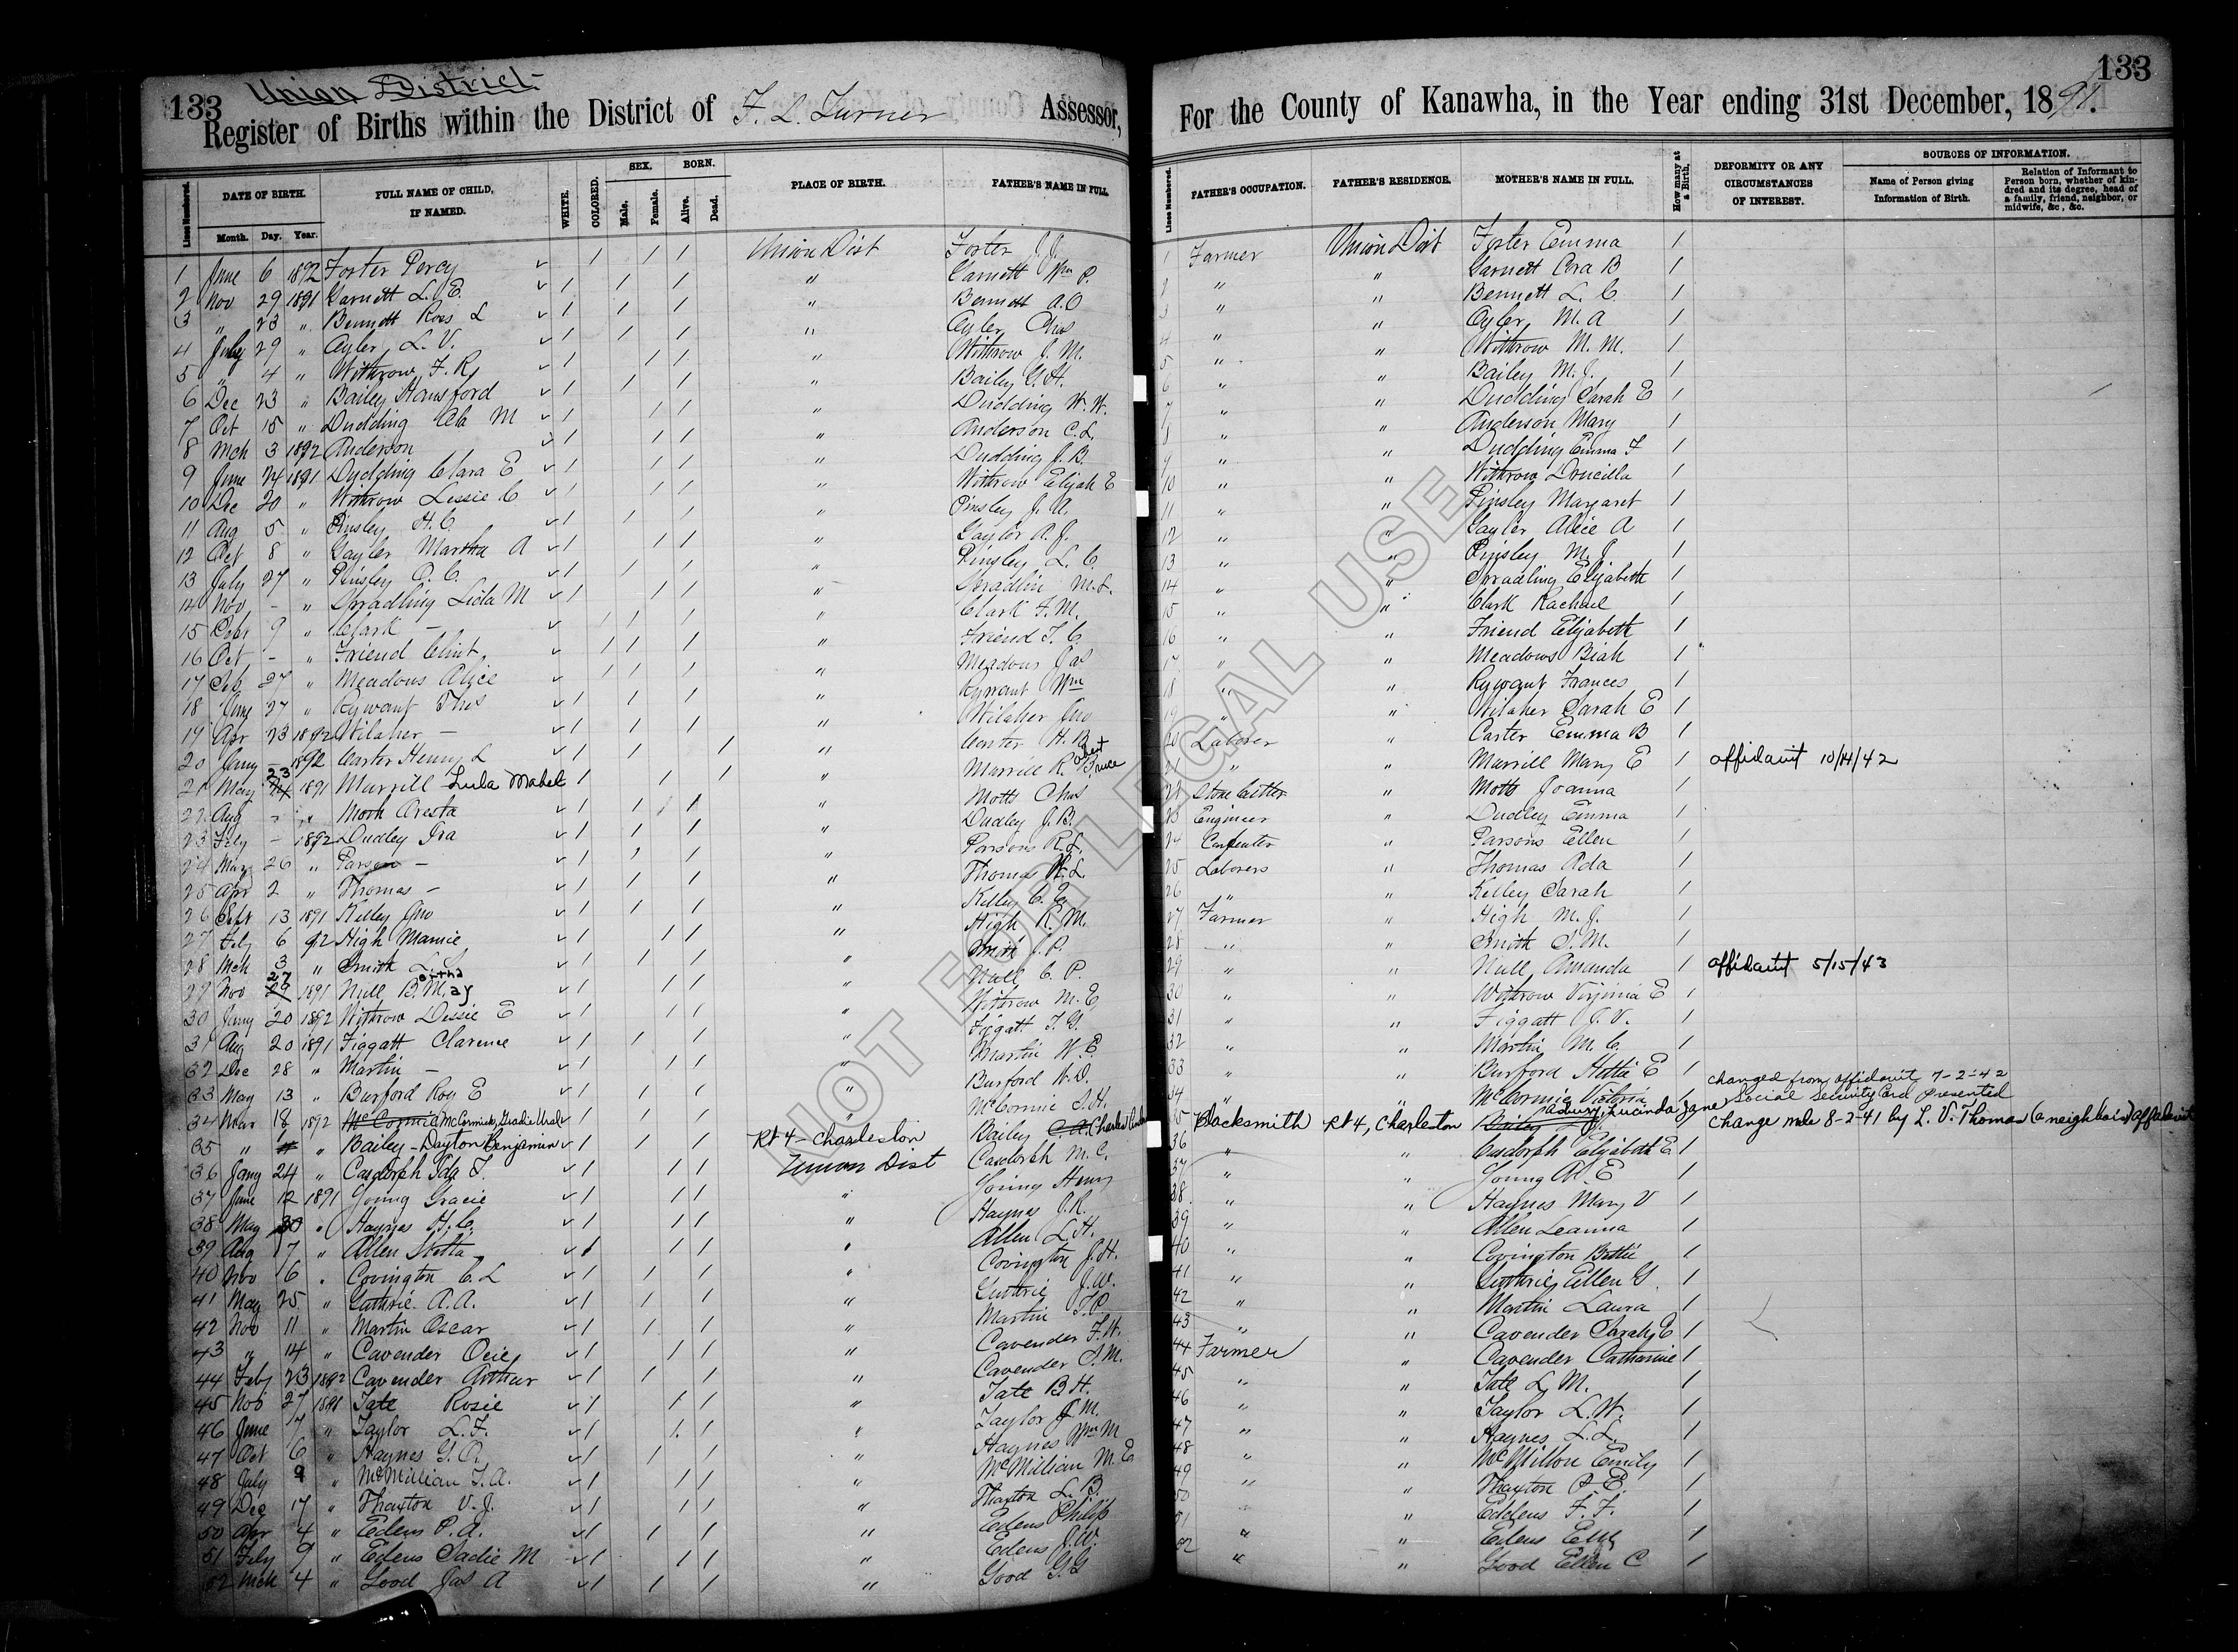 133 Union District
Register of Births within the District of F. L. Turner Assessor,
Lines Numbered. DATE OF BIRTH. FULL NAME OF CHILD, IF NAMED. WHITE. COLORED. SEX. BORN. PLACE OF BIRTH. FATHER'S NAME IN FULL.
Month. Day. Year. Male. Female. Alive. Dead.
1 June 6 1892 Foster Percy 1 1 1 Union Dist Foster J. J.
2 Nov 29 1891 Garnett L. E. 1 1 1 " Garnett Wm P.
3 " 23 " Bennett Ross L 1 1 1 " Bennett A. O
4 July 29 " Ayler L. V. 1 1 1 " Ayler Chas
5 " 4 " Withrow F. R. 1 1 1 " Withrow J. M.
6 Dec 23 " Bailey Hansford 1 1 1 " Bailey G. H.
7 Oct 15 " Dudding M 1 1 1 " Dudding W. W.
8 Mch 3 1892 Anderson 1 1 1 " Anderson C. L.
9 June 24 1891 Dudding Clara E 1 1 1 " Dudding J. B.
10 Dec 20 " Withrow Lessie C 1 1 1 " Withrow Elijah E
11 Aug 5 " Pinsley H. C. 1 1 1 " Pinsley J. A.
12 Oct 8 " Gayler Martha A 1 1 1 " Gaylor A. J.
13 July 27 " Pinsley O. C. 1 1 1 " Pinsley L. C.
14 Nov - " Spradling Lida M 1 1 1 " Spradlin M. L.
15 9 " Clark - 1 1 1 " Clark F. M.
16 Oct - " Friend Clint 1 1 1 " Friend T. C
17 Feb 27 " Meadows Alice 1 1 1 " Meadows Jas
18 27 " Rywant Thos 1 1 1 " Wm
19 Apr 23 1892 Wilaher - 1 1 1 " Wilaher Jno
20 Jany - 1892 Carter Henry L 1 1 1 " Carter H. B.
21 May 23 1891 Murrill Lula Mabel 1 1 1 " Murrill R. obert Bruce
22 Aug - " Mott Aresta 1 1 1 " Motts Chas
23 Feby - 1892 Dudley Ira 1 1 1 " Dudley J. B.
24 May 26 " Parson - 1 1 1 " Parsons R. L.
25 Apr 2 " Thomas - 1 1 1 " Thomas W. L.
26 Sept 13 1891 Kelley Jno 1 1 1 " Kelley C. E.
27 Feb 6 92 High Mamie 1 1 1 " High R. M.
28 Mch 3 " Smith 1 1 1 " Smith J. P.
29 Nov 27 1891 Null B. ertha May 1 1 1 " Null C. P.
30 Jany 20 1892 Withrow Dessie E 1 1 1 " Withrow M. E
31 Aug 20 1891 Figgatt Clarence 1 1 1 " Figgatt T. G.
32 Dec 28 " Martin - 1 1 1 " Martin W. E.
33 May 13 " Burford Roy E 1 1 1 " Burford W. D.
34 Mar 18 1892 McCormick, Gradie Ural 1 1 1 " McCormic S. H.
35 " " Bailey - Dayton Benjamin 1 1 1 Rt 4 - Charleston Bailey Charles
36 Jany 24 " Casdorph Ida F. 1 1 1 Union Dist Casdorph M. C.
37 June 12 1891 Young Gracie 1 1 1 " Young Henry
38 May 30 " Haynes H. C. 1 1 1 " Haynes J. R.
39 Aug 17 " Allen Stella 1 1 1 " Allen L. H.
40 Nov 6 " Covington C. L 1 1 1 " Covington J. H.
41 May 25 " Guthrie A. A. 1 1 1 " Guthrie J. W.
42 Nov 11 " Martin Oscar 1 1 1 " Martin F. P.
43 " 14 " Cavender Ocie 1 1 1 " Cavender F. W.
44 Feby 23 1892 Cavender Arthur 1 1 1 " Cavender S. M.
45 Nov 27 1891 Tate Rosie 1 1 1 " Tate B. H.
46 June 7 " Taylor L. F. 1 1 1 " Taylor J. M.
47 Oct 6 " Haynes G. O. 1 1 1 " Haynes Wm M
48 July 9 " McMillian T. A. 1 1 1 " McMillian M. E
49 Dec 17 " Thaxton V. J. 1 1 1 " Thaxton L. B.
50 Apr 4 " Edens P. A. 1 1 1 " Edens Philip
51 Feby 9 " Edens Sadie M 1 1 1 " Edens J. W.
52 Mch 4 " Good Jas A 1 1 1 " Good G. G
133
For the County of Kanawha, in the Year ending 31st December, 1891.
Lines Numbered. FATHER'S OCCUPATION. FATHER'S RESIDENCE. MOTHER'S NAME IN FULL. How many at a Birth. DEFORMITY OR ANY CIRCUMSTANCES OF INTEREST. SOURCES OF INFORMATION.
Name of Person giving Information of Birth. Relation of Informant to Person born, whether of kindred and its degree, head of a family, friend, neighbor, or midwife, &c, &c.
1 Farmer Union Dist Foster Emma 1
2 " " Garnett Cora B 1
3 " " Bennett L. C. 1
4 " " Ayler M. A 1
5 " " Withrow M. M. 1
6 " " Bailey M. J. 1
7 " " Dudding Sarah E 1
8 " " Anderson Mary 1
9 " " Dudding Emma F 1
10 " " Withrow Drucilla 1
11 " " Pinsley Margaret 1
12 " " Gayler Alice A 1
13 " " Pinsley M. J. 1
14 " " Spradling Elizabeth 1
15 " " Clark Rachael 1
16 " " Friend Elizabeth 1
17 " " Meadows Biah 1
18 " " Rywant Frances 1
19 " " Wilaher Sarah E 1
20 Laborer " Carter Emma B 1
21 " " Murrill Mary E 1 affidavit 10/14/42
22 Stone Cutter " Motts Joanna 1
23 Engineer " Dudley Emma 1
24 Carpenter " Parsons Ellen 1
25 Laborers " Thomas Ada 1
26 " " Kelley Sarah 1
27 Farmer " High M. J. 1
28 " " Smith S. M. 1
29 " " Null Amanda 1 affidavit 5/15/43
30 " " Withrow Virginia E 1
31 " " Figgatt J. V. 1
32 " " Martin M. C. 1
33 " " Burford Hattie E 1
34 " " McCormic Victoria changed from affidavit 7-2-42 Social Security Card presented
35 Blacksmith Rt 4, Charleston Asbury, Lucinda Jane change made 8-2-41 by L. V. Thomas (a neighbor) affidavit
36 " " Casdorph Elizabeth E 1
37 " " Young M. E 1
38 " " Haynes Mary V 1
39 " " Allen Leanna 1
40 " " Covington Bettie 1
41 " " Guthrie Ellen G. 1
42 " " Martin Laura 1
43 " " Cavender Sarah E 1
44 Farmer " Cavender Catharine 1
45 " " Tate L. M. 1
46 " " Taylor L. W. 1
47 " " Haynes L. L. 1
48 " " McMillon Emily 1
49 " " Thaxton P. E. 1
50 " " Eddens F. F. 1
51 " " Edens 1
52 " " Good Ellen C 1
NOT FOR LEGAL USE